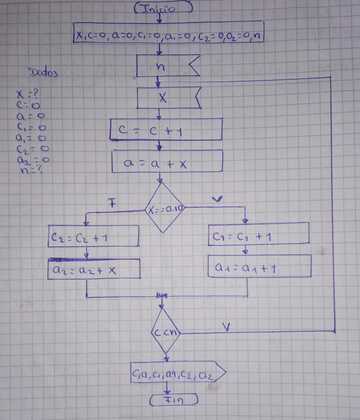 Inicio
X, C=0, a=0, C₁=0, a₁=0, C₂=0, a₂=0, n
n
Dados
X=?
C=0
a=0
C₁=0
a₁=0
C₂=0
a₂=0
n=?
X
C = C + 1
a = a + x
F
V
C₂ = C₂ + 1
C₁ = C₁ + 1
a₂ = a₂ + x
a1 = a1 + 1
C<n
V
C, a, C₁, a1, C₂, a₂
Fin